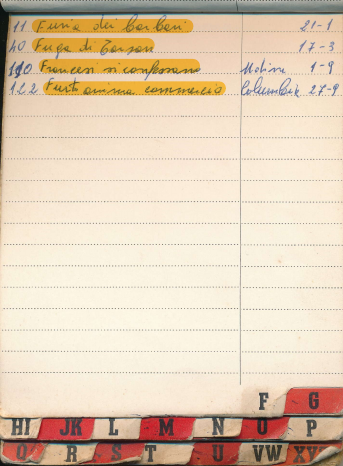 11 Furia dei barbari 21-1
40 Fuga di Tarzan 17-3
110 Francesi si confessano 1-9
122 Furto anima commercio Columbia 27-9
F G
HI JK L M N O P
Q R S T U VW XY